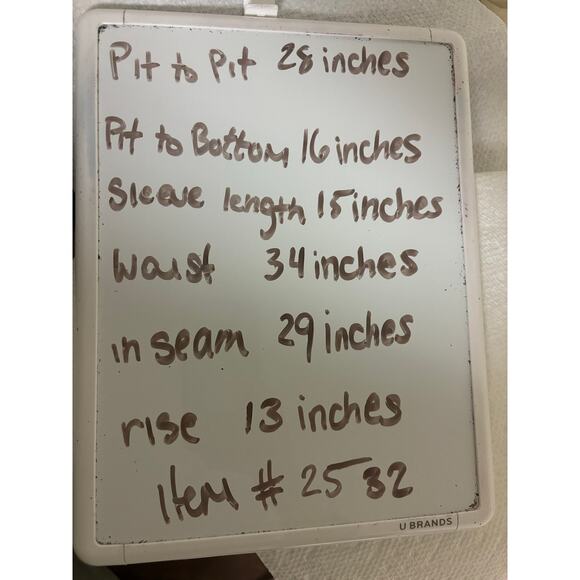 Pit to Pit 28 inches
Pit to Bottom 16 inches
Sleeve length 15 inches
Waist 34 inches
in seam 29 inches
rise 13 inches
Item # 2532
U BRANDS